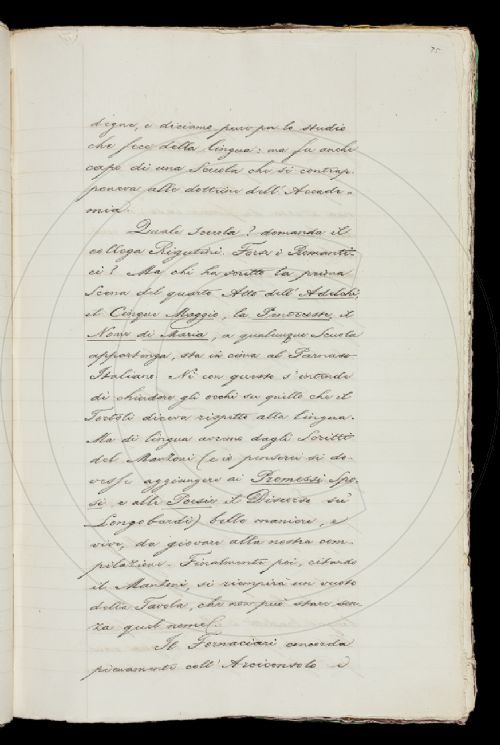 75
digne, e diciamo pure per lo studio
che fece della lingua: ma fu anche
capo di una Scuola che si contrap-
poneva alle dottrine dell'Accade-
mia.
Quale scuola? domanda il
collega Rigutini. Forse i Romanti-
ci? Ma chi ha scritto la prima
Scena del quarto Atto dell'Adelchi,
il Cinque Maggio, la Pentecoste, il
Nome di Maria, a qualunque Scuola
appartenga, sta in cima al Parnaso
Italiano. Nè con questo s'intende
di chiudere gli occhi su quello che il
Tortoli diceva rispetto alla lingua.
Ma di lingua avremo dagli Scritti
del Manzoni (e io penserei si do-
vesse aggiungere ai Promessi Spo-
si, e alle Poesie il Discorso sui
Longobardi) belle maniere, e
vive, da giovare alla nostra com-
pilazione. Finalmente poi, citando
il Manzoni, si riempirà un vuoto
della Tavola, che non può stare sen-
za quel nome.
Il Fornaciari concorda
pienamente coll'Arciconsolo e